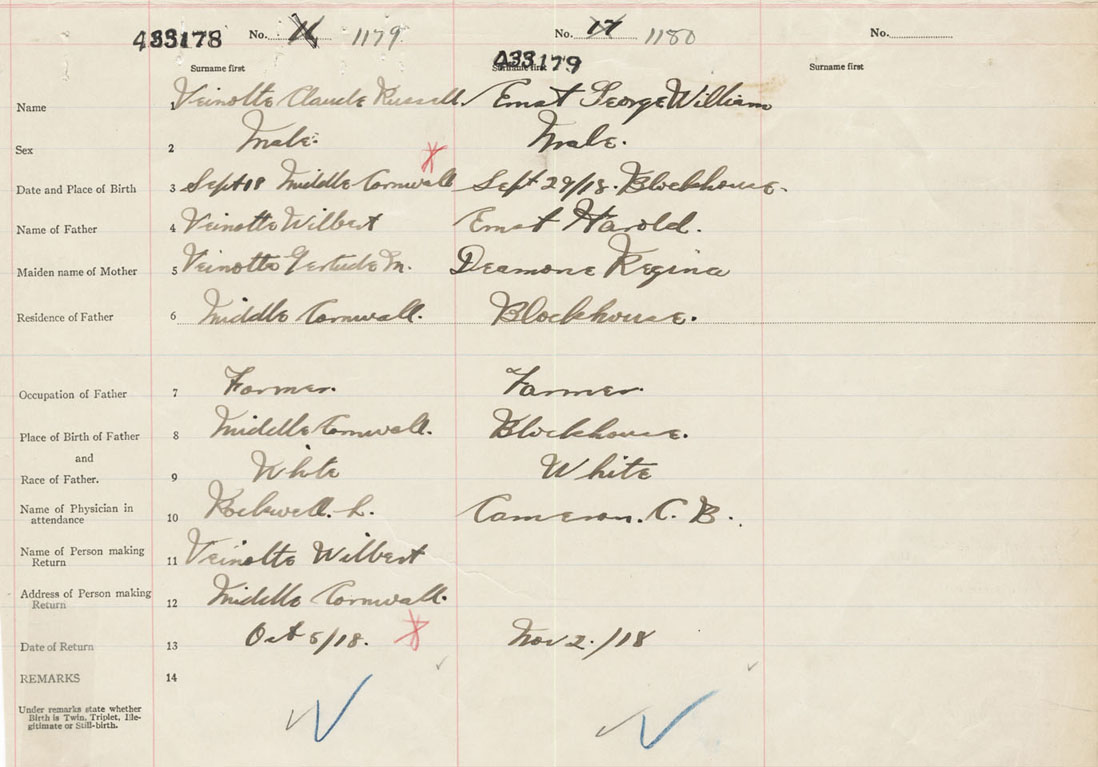 433178 No. 16 1179 No. 17 1180 No.
433179
Surname first Surname first Surname first
Name 1 Veinotte Claude Russell. Ernst George William
Sex 2 Male. Male.
Date and Place of Birth 3 Sept 18 Middle Cornwall Sept 29/18. Blockhouse.
Name of Father 4 Veinotte Wilbert Ernst Harold.
Maiden name of Mother 5 Veinotte Gertrude M. Deamone Regina
Residence of Father 6 Middle Cornwall. Blockhouse.
Occupation of Father 7 Farmer. Farmer.
Place of Birth of Father 8 Middle Cornwall. Blockhouse.
and
Race of Father. 9 White White
Name of Physician in
attendance 10 Rockwell. L. Cameron. C. B.
Name of Person making
Return 11 Veinotte Wilbert
Address of Person making
Return 12 Middle Cornwall.
Date of Return 13 Oct 5/18. Nov 2./18
REMARKS 14
Under remarks state whether
Birth is Twin, Triplet, Ille-
gitimate or Still-birth.